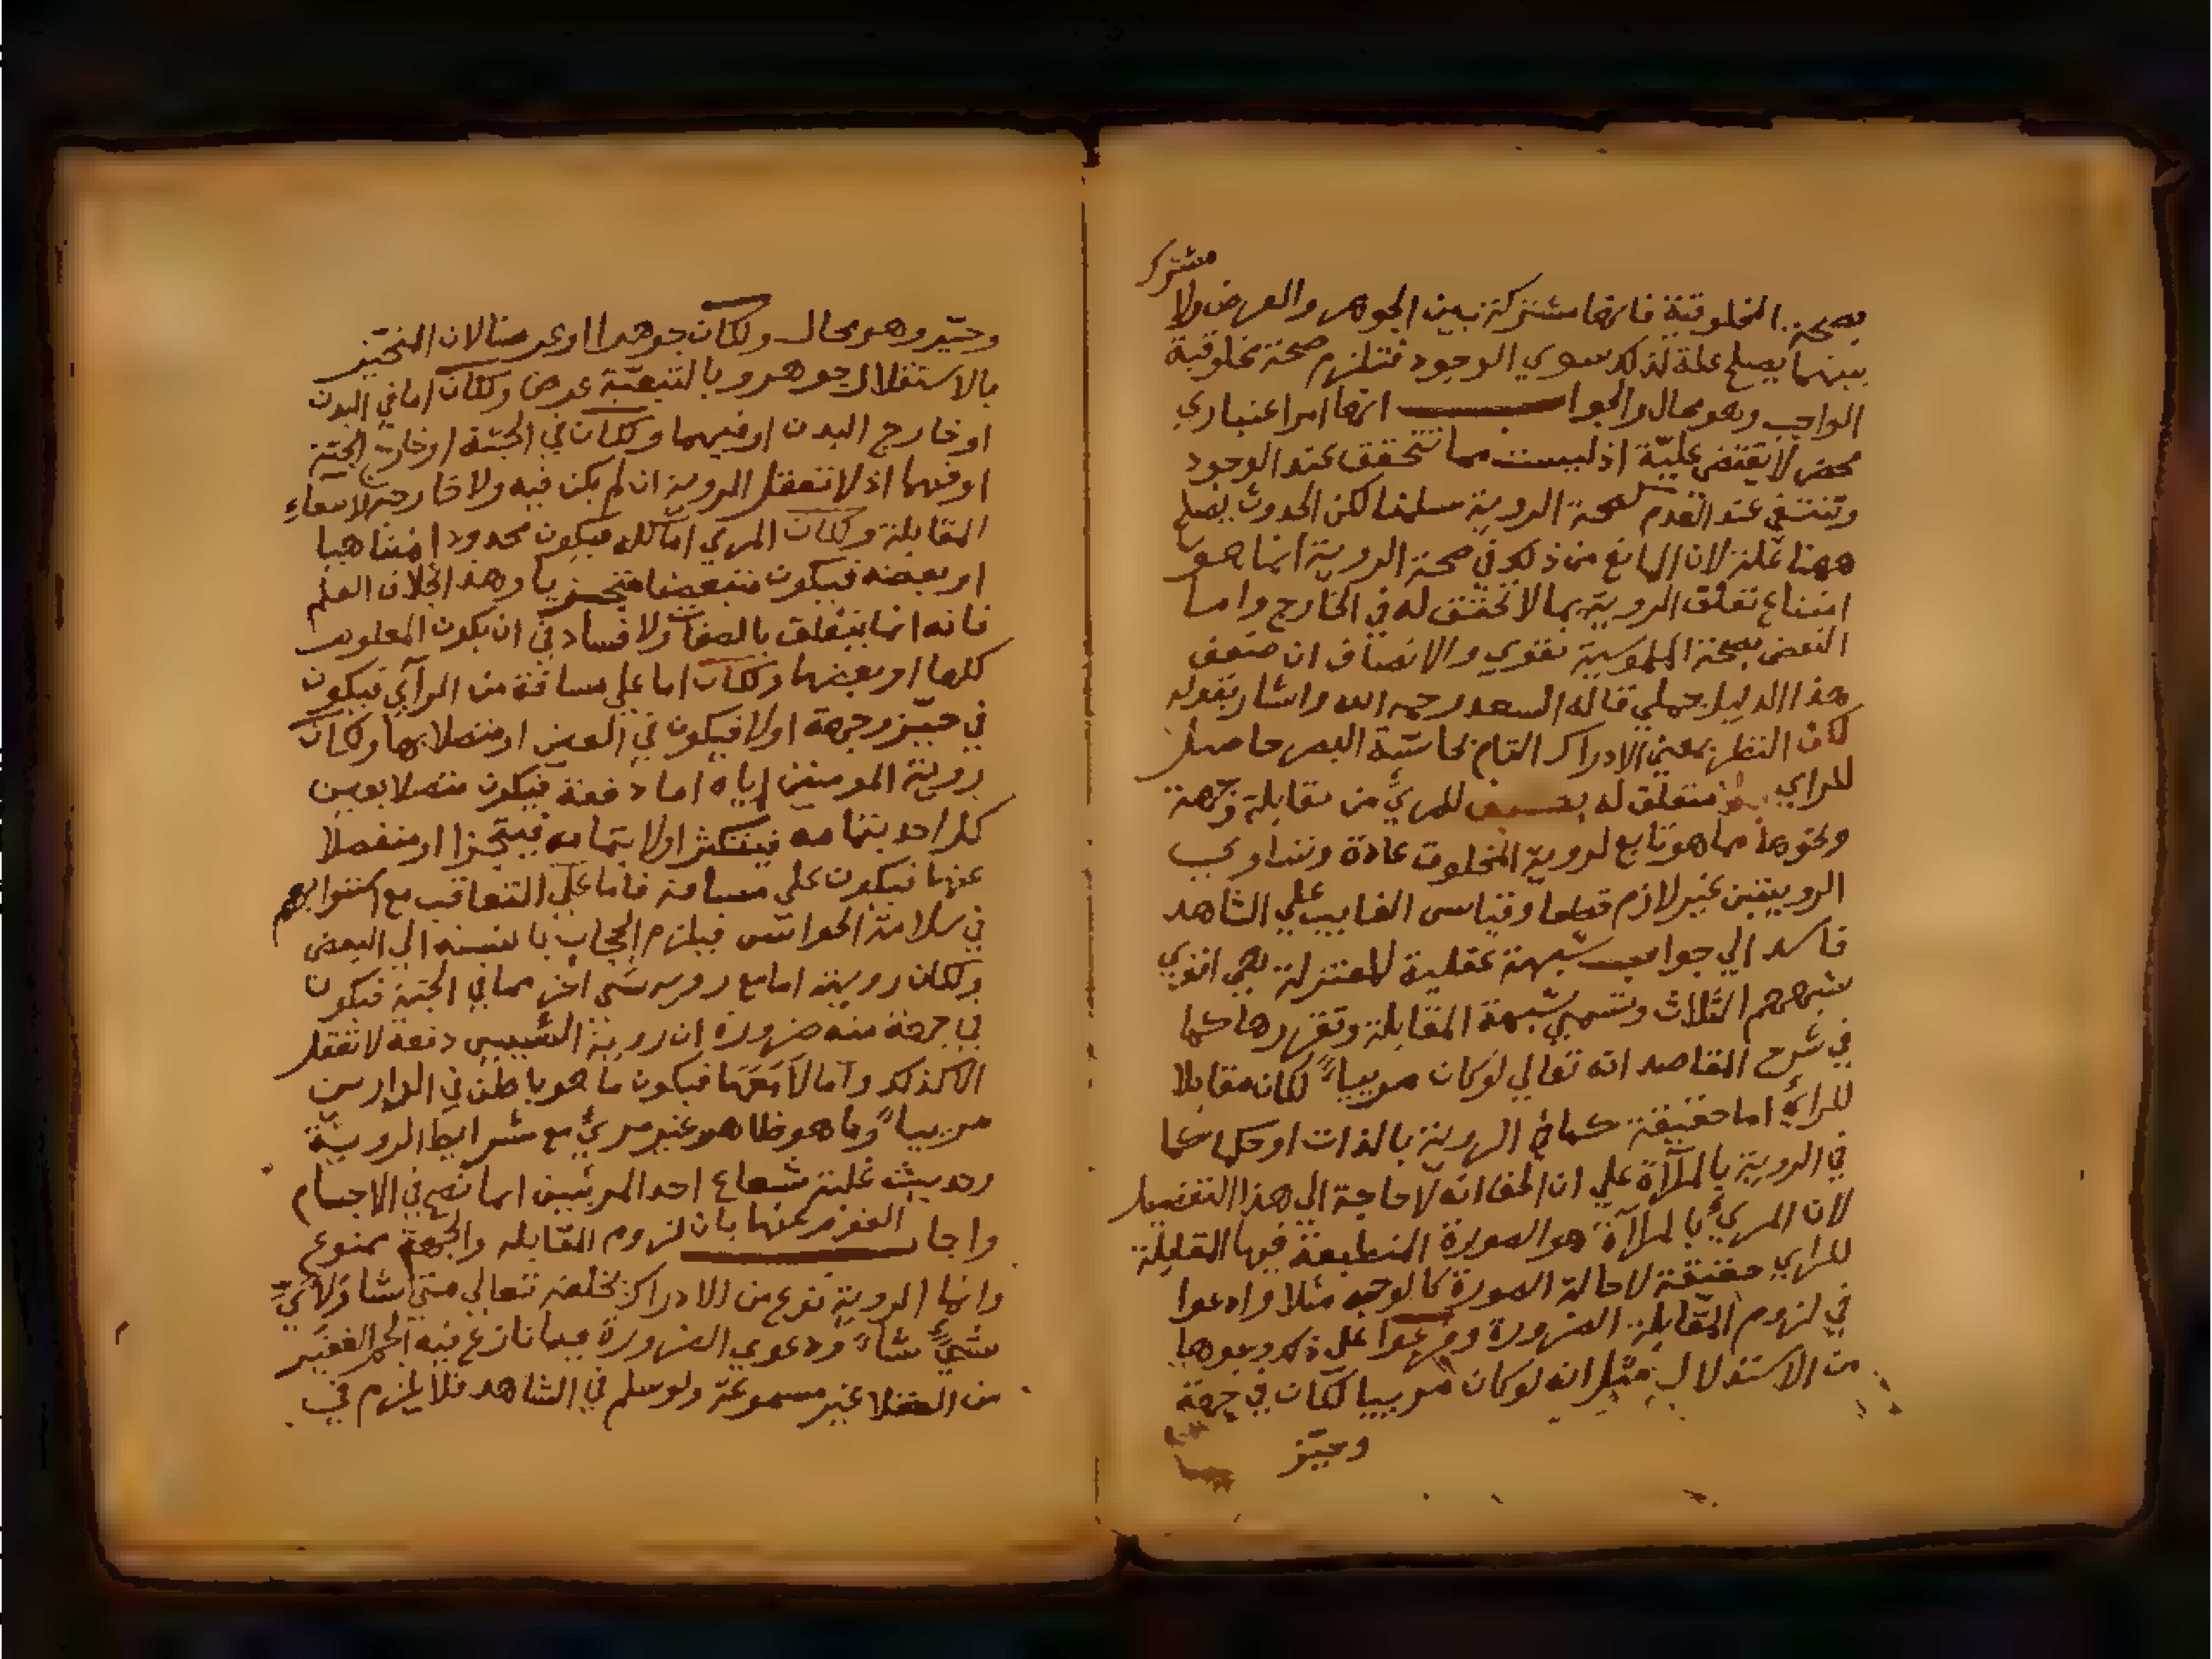 مشترك
بصحة المخلوقية فانها مشتركة بين الجوهر والعرض ولا
بينهما يصلح علة لذلك سوي الوجود فتلزم صحة مخلوقية
الواجب وهو محال والجواب انها امر اعتباري
محض لا يقتضي عليّة اذ ليست مما تتحقق عند الوجود
وتنتفي عند العدم كصحة الروية سلمنا لكن الحدوث يصلح
ههنا علة لان المانع من ذلك في صحة الروية انما هو
امتناع تعلق الروية بما لا تحقق له في الخارج واما
النقض بصحة الملموسية فقوي والانصاف ان ضعف
هذا الدليل جملي قاله السعد رحمه الله واشار بقوله
لكن النظر بمعني الادراك التام بحاسّة البصر حاصل
للراي متعلق له للمريّ من مقابلة وجهة
ونحوها مما هو تابع لروية المخلوق عادة وتساوي
الرويتين غير لازم قطعا وقياس الغايب علي الشاهد
فاسد الي جواب شبهة عقلية للمعتزلة هي اقوي
شبههم الثلاث وتسمي شبهة المقابلة وتقريرها كما
في شرح المقاصد انه تعالي لو كان مرييا لكان مقابلا
للرائي اما حقيقة كما في الروية بالذات او حكما كما
في الروية بالمرآة علي ان الحق انه لا حاجة الي هذا التفصيل
لان المريّ بالمرآة هو الصورة المنطبعة فيها المقابلة
للراي حقيقة لا حالة الصورة كالوجه مثلا وادعوا
في لزوم المقابلة الضرورة وفرعوا علي ذلك وجوها
من الاستدلال مثل انه لو كان مرييا لكان في جهة
وحيّز
وحيّز وهو محال ولكان جوهرا او عرضا لان المتحيّز
بالاستقلال جوهر وبالتبعيّة عرض ولكان اما في البدن
او خارج البدن او فيهما ولكان في الجنّة او خارج الجنّة
او فيهما اذ لا تعقل الروية ان لم يكن فيه ولا خارجه لانتفاء
المقابلة ولكان المري اما كله فيكون محدودا متناهيا
او بعضه فيكون متبعضا متجزيا وهذا بخلاف العلم
فانه انما يتعلق بالصفات ولا فساد في ان يكون المعلوم
كلها او بعضها ولكان اما علي مسافة من الرآي فيكون
في حيّز وجهة اولا فيكون في العين او متصلا بها ولكان
روية المومنين إياه اما دفعة فيكون متصلا بعين
كل احد بتمامه فيتكثر اولا بتمامه فيتجزا او منفصلا
عنها فيكون علي مسافة فاما علي التعاقب مع استوايهم
في سلامة الحواس فيلزم الحجاب بالنسبة الي البعض
ولكان رويته اما مع روية شي اخر مما في الجنة فيكون
في جهة منه ضرورة ان روية الشييين دفعة لا تعقل
الا كذلك وأما لا معها فيكون ما هو باطن في الدارين
مرييا وما هو ظاهر غير مريّ مع شرايط الروية
وحديث غلبة شعاع احد المرئيين انما تصح في الاجسام
واجاب الفخر عنها بان لزوم المقابلة والجهة ممنوع
وانما الروية نوع من الادراك يخلقه تعالي متي شا ولايّ
شيٍّ شاء ودعوي الضرورة فيما نازع فيه الجم الغفير
من العقلا غير مسموعة ولو سلم في الشاهد فلا يلزم في